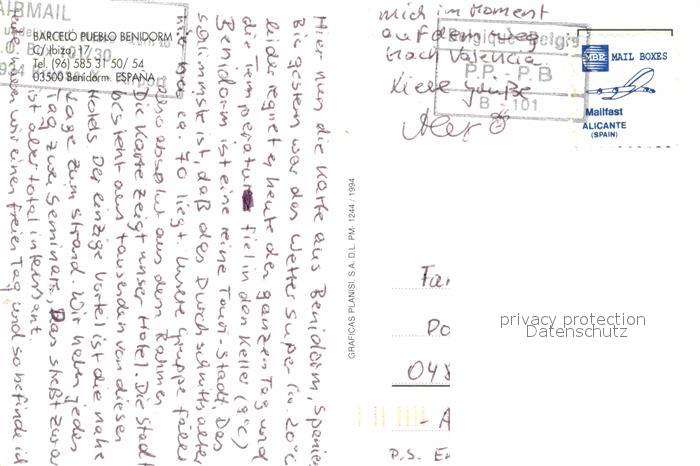 AIRMAIL
BARCELÓ PUEBLO BENIDORM
C/ Ibiza, 17
Tel. (96) 585 31 50/ 54
03500 Benidorm. ESPAÑA
Hier nun die Karte aus Benidorm, Spanien
Bis gestern war das Wetter super (ca. 20°C
leider regnet es heute den ganzen Tag und
die Temperatur fiel in den Keller (9°C)
Benidorm ist eine reine Touri-Stadt. Das
schlimmste ist, daß das Durchschnittsalter
hier bei ca. 70 liegt. Unsere Gruppe fällt
also absolut aus dem Rahmen.
Die Karte zeigt unser Hotel. Die Stadt
besteht aus tausenden von dieser
Hotels. Der einzige Vorteil ist die nahe
Lage zum Strand. Wir haben jeden
Tag zwei Seminare, Das stießt zwar
ist aber total interessant.
haben wir einen freien Tag und so befinde ich
mich im Moment
auf dem Weg
nach Valencia.
Viele Grüße
Alex
GRAFICAS PLANISI, S.A. D.L. PM. 1244 / 1994
Belgique-België
P.P. - P.B
B - 101
MBE MAIL BOXES
Mailfast
ALICANTE
(SPAIN)
Fa
Do
048
P.S.
privacy protection
Datenschutz